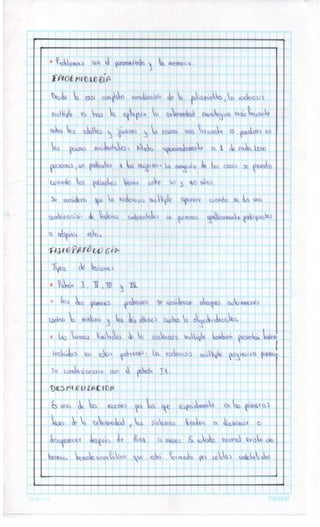 • Problemas con el pensamiento y la memoria.
EPIDEMIOLOGÍA
Desde la casi completa erradicación de la poliomielitis, la esclerosis
múltiple es tras la epilepsia la enfermedad neurológica más frecuente
entre los adultos y jóvenes y la causa más frecuente de paralisis en
los países occidentales. Afecta aproximadamente a 1 de cada 1000
personas, en particular a las mujeres. La mayoría de los casos se presenta
cuando los pacientes tienen entre 20 y 40 años.
Se considera que la esclerosis múltiple aparece cuando se da una
combinación de factores ambientales en personas genéticamente predispuestas
a adquirir esta.
FISIOPATOLOGÍA
Tipos de lesiones
• Patrón I, II, III y IV.
• Los dos primeros patrones se consideran ataques autoinmunes
contra la mielina y los dos últimos contra la oligodendrocitos.
• Las formas limitadas de la esclerosis múltiple también presentan
en estos patrones. La esclerosis múltiple progresiva primaria
se con el patrón IV.
DESMIELINIZACIÓN
Es una de las razones por las que especialmente en las primeras
fases de la enfermedad, los síntomas tienden a disminuir o
desaparecer después de días a meses. En estado normal existe una
barrera hematoencefálica que está formada por células endoteliales